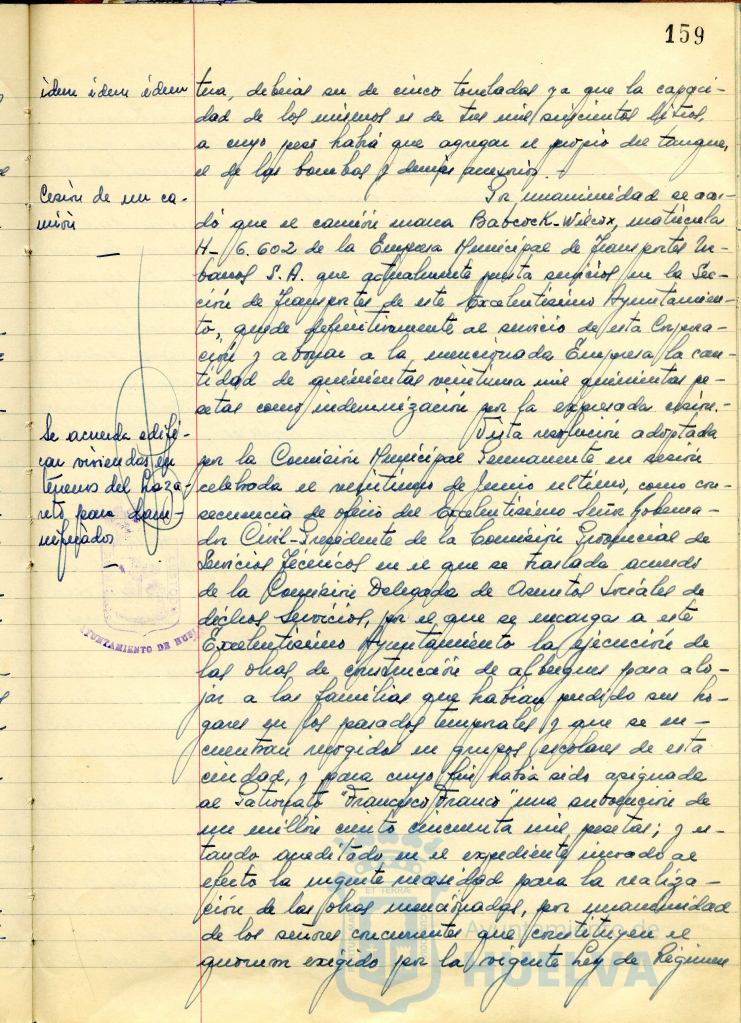 159
idem idem idem
tura, deberias ser de cinco toneladas ya que la capaci-
dad de los mismos es de tres mil seiscientos litros,
a cuyo peso habrá que agregar el propio del tanque,
el de las bombas y demás accesorios.-
Cesión de un ca-
mión
—
Por unanimidad se acor-
dó que el camión marca Babcock-Wilcox, matrícula
H- 6.602 de la Empresa Municipal de Transportes Ur-
banos S.A. que actualmente presta servicios en la Sec-
ción de Transportes de este Excelentísimo Ayuntamien-
to, quede definitivamente al servicio de esta Corpora-
ción y abonar a la mencionada Empresa la can-
tidad de quinientas veintiuna mil quinientas pe-
setas como indemnización por la expresada cesión.-
Se acuerda edifi-
car viviendas en
terrenos del Laza-
reto para dam-
nificados
—
Vista resolución adoptada
por la Comisión Municipal Permanente en sesión
celebrada el veintinueve de Junio último, como con-
secuencia de oficio del Excelentísimo Señor Goberna-
dor Civil-Presidente de la Comisión Provincial de
Servicios Técnicos en el que se traslada acuerdo
de la Comisión Delegada de Asuntos Sociales de
dichos Servicios, por el que se encarga a este
Excelentísimo Ayuntamiento la ejecución de
las obras de construcción de albergues para alo-
jar a las familias que habían perdido sus ho-
gares en los pasados temporales y que se en-
cuentran recogidos en grupos escolares de esta
ciudad, y para cuyo fin había sido asignada
al Patronato "Francisco Franco" una subvención de
un millón ciento cincuenta mil pesetas; y es-
tando acreditado en el expediente incoado al
efecto la urgente necesidad para la realiza-
ción de las obras mencionadas, por unanimidad
de los señores concurrentes que constituyen el
quorum exigido por la vigente Ley de Régimen
AYUNTAMIENTO DE HUELVA
ET TERRAE
Ayuntamiento de
HUELVA